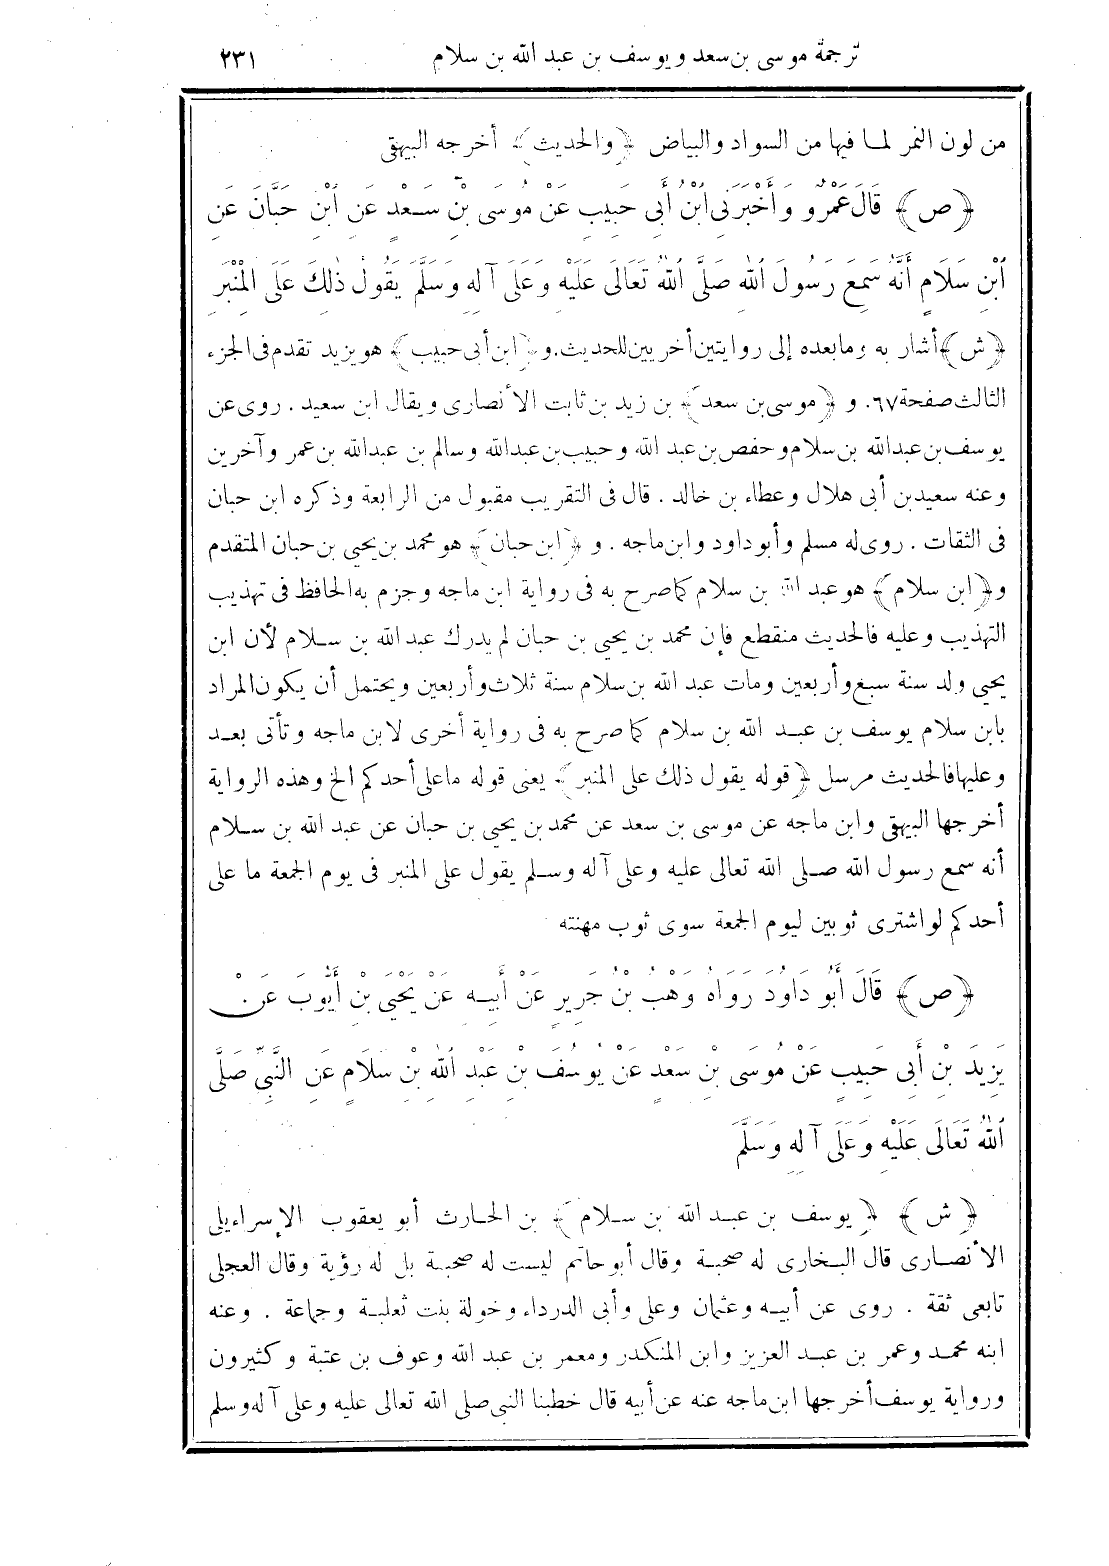 ترجمة موسى بن سعد ويوسف بن عبد الله بن سلام ٢٣١
من لون النمر لما فيها من السواد والبياض ﴿والحديث﴾ أخرجه البيهقى
﴿ص﴾ قَالَ عَمْرٌو وَأَخْبَرَنِى ابْنُ أَبِى حَبِيبٍ عَنْ مُوسَى بْنِ سَعْدٍ عَنِ ابْنِ حَبَّانَ عَنِ
ابْنِ سَلَامٍ أَنَّهُ سَمِعَ رَسُولَ اللهِ صَلَّى اللهُ تَعَالَى عَلَيْهِ وَعَلَى آلِهِ وَسَلَّمَ يَقُولُ ذٰلِكَ عَلَى الْمِنْبَرِ
﴿ش﴾ أشار به وما بعده إلى روايتين أخريين للحديث. و ﴿ابن أبى حبيب﴾ هو يزيد تقدم فى الجزء
الثالث صفحة ٦٧. و ﴿موسى بن سعد﴾ بن زيد بن ثابت الأنصارى ويقال ابن سعيد . روى عن
يوسف بن عبدالله بن سلام وحفص بن عبد الله وحبيب بن عبدالله وسالم بن عبدالله بن عمر وآخرين
وعنه سعيد بن أبى هلال وعطاء بن خالد . قال فى التقريب مقبول من الرابعة وذكره ابن حبان
فى الثقات . روى له مسلم وأبو داود وابن ماجه . و ﴿ابن حبان﴾ هو محمد بن يحيى بن حبان المتقدم
و﴿ابن سلام﴾ هو عبد الله بن سلام كما صرح به فى رواية ابن ماجه وجزم به الحافظ فى تهذيب
التهذيب وعليه فالحديث منقطع فإن محمد بن يحيى بن حبان لم يدرك عبد الله بن سلام لأن ابن
يحيى ولد سنة سبع وأربعين ومات عبد الله بن سلام سنة ثلاث وأربعين ويحتمل أن يكون المراد
بابن سلام يوسف بن عبد الله بن سلام كما صرح به فى رواية أخرى لابن ماجه وتأتى بعد
وعليها فالحديث مرسل ﴿قوله يقول ذلك على المنبر﴾ يعنى قوله ما على أحدكم الخ وهذه الرواية
أخرجها البيهقى وابن ماجه عن موسى بن سعد عن محمد بن يحيى بن حبان عن عبد الله بن سلام
أنه سمع رسول الله صلى الله تعالى عليه وعلى آله وسلم يقول على المنبر فى يوم الجمعة ما على
أحدكم لو اشترى ثوبين ليوم الجمعة سوى ثوب مهنته
﴿ص﴾ قَالَ أَبُو دَاوُدَ رَوَاهُ وَهْبُ بْنُ جَرِيرٍ عَنْ أَبِيهِ عَنْ يَحْيَى بْنِ أَيُّوبَ عَنْ
يَزِيدَ بْنِ أَبِى حَبِيبٍ عَنْ مُوسَى بْنِ سَعْدٍ عَنْ يُوسُفَ بْنِ عَبْدِ اللهِ بْنِ سَلَامٍ عَنِ النَّبِيِّ صَلَّى
اللهُ تَعَالَى عَلَيْهِ وَعَلَى آلِهِ وَسَلَّمَ
﴿ش﴾ ﴿يوسف بن عبد الله بن سلام﴾ بن الحارث أبو يعقوب الإسراءيلى
الأنصارى قال البخارى له صحبة وقال أبو حاتم ليست له صحبة بل له رؤية وقال العجلى
تابعى ثقة . روى عن أبيه وعثمان وعلى وأبى الدرداء وخولة بنت ثعلبة وجماعة . وعنه
ابنه محمد وعمر بن عبد العزيز وابن المنكدر ومعمر بن عبد الله وعوف بن عتبة وكثيرون
ورواية يوسف أخرجها ابن ماجه عنه عن أبيه قال خطبنا النبى صلى الله تعالى عليه وعلى آله وسلم